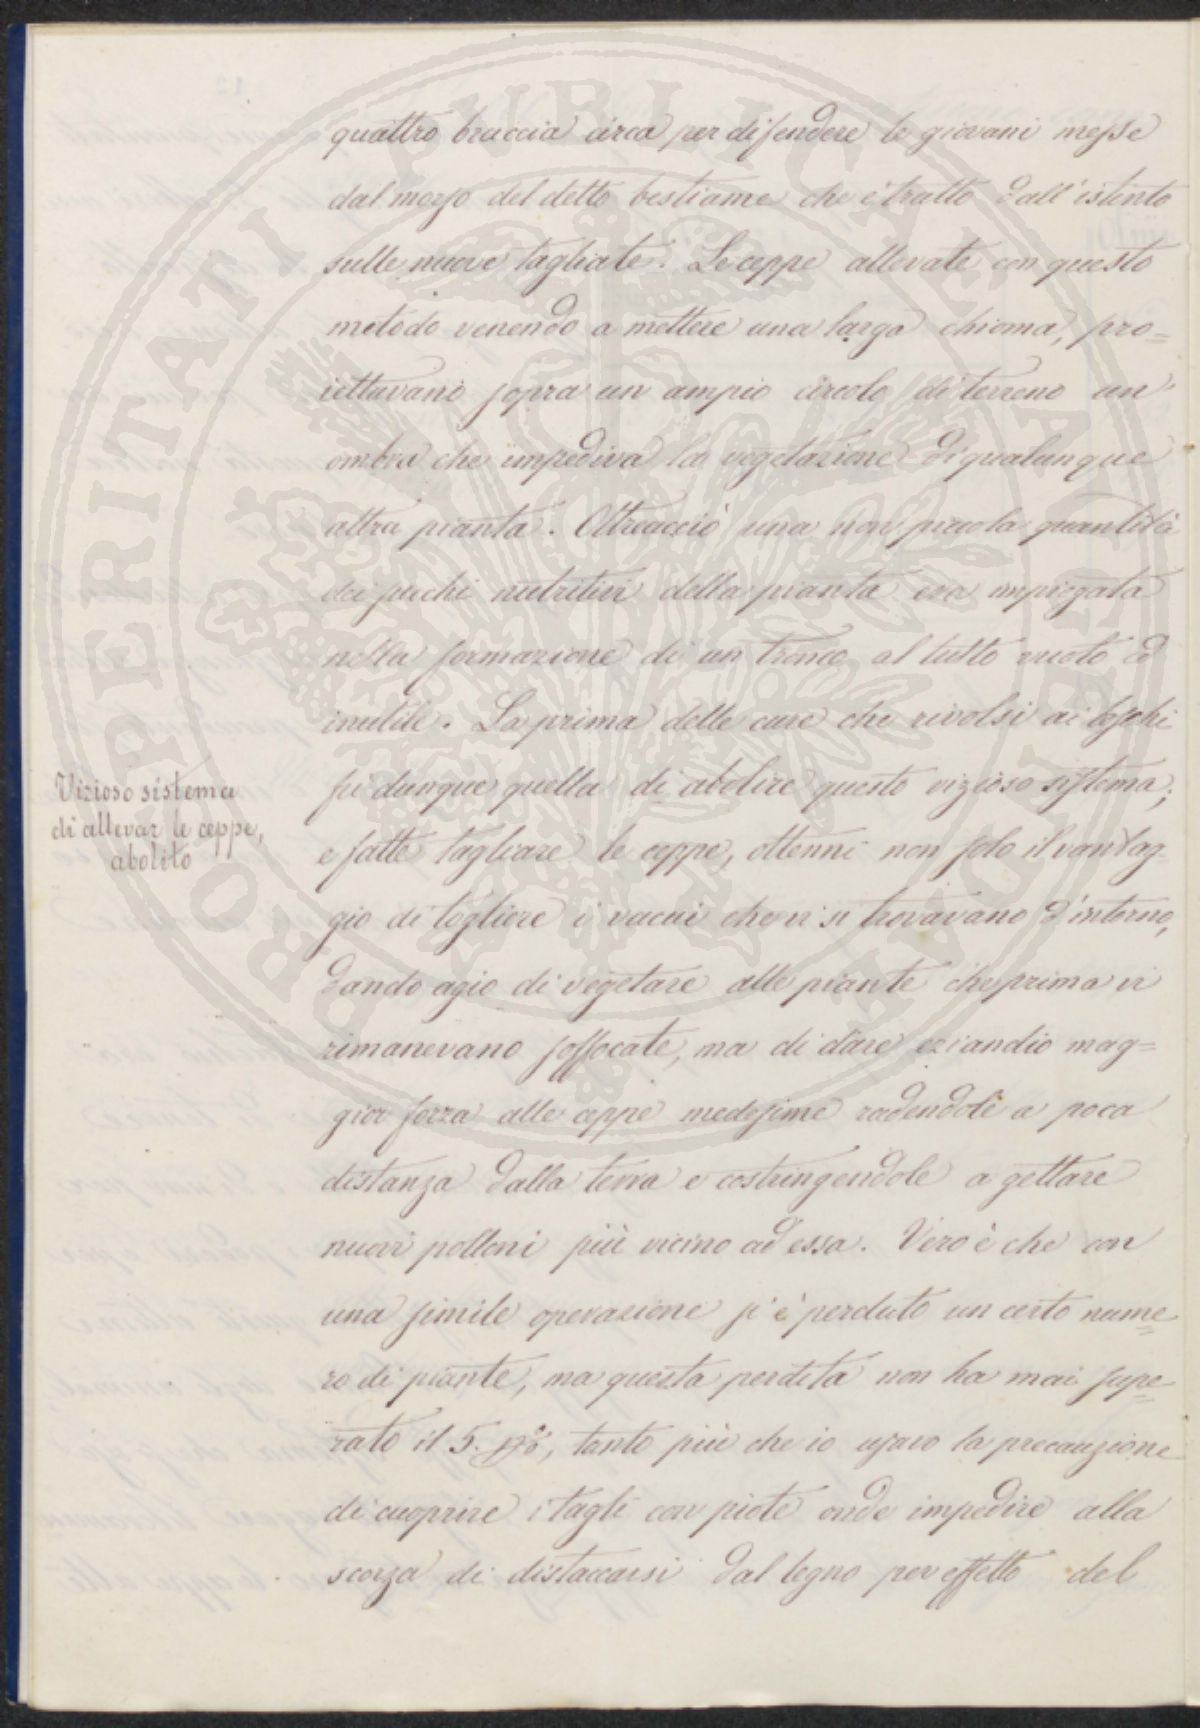 quattro braccia circa per difendere le giovani messe
dal morso del detto bestiame che è tratto dall'istinto
sulle nuove tagliate. Le ceppe allevate con questo
metodo venendo a mettere una larga chioma, pro=
iettavano sopra un ampio circolo di terreno un'
ombra che impediva la vegetazione di qualunque
altra pianta. Oltreacciò una non piccola quantità
dei succhi nutritivi della pianta era impiegata
nella formazione di un tronco al tutto vuoto ed
inutile. La prima delle cure che rivolsi ai boschi
Vizioso sistema
di allevar le ceppe,
abolito
fu dunque quella di abolire questo vizioso sistema;
e fatte tagliare le ceppe, ottenni non solo il vantag-
gio di togliere i vacui che vi si trovavano d'intorno,
dando agio di vegetare alle piante che prima vi
rimanevano soffocate, ma di dare eziandio mag=
gior forza alle ceppe medesime radendole a poca
distanza dalla terra e costringendole a gettare
nuovi polloni più vicino ad essa. Vero è che con
una simile operazione si è perduto un certo nume=
ro di piante, ma questa perdita non ha mai supe=
rato il 5. p%, tanto più che io usavo la precauzione
di cuoprire i tagli con piote onde impedire alla
scorza di distaccarsi dal legno per effetto del
PROPERITATI PUBLICAE AUGENDAE